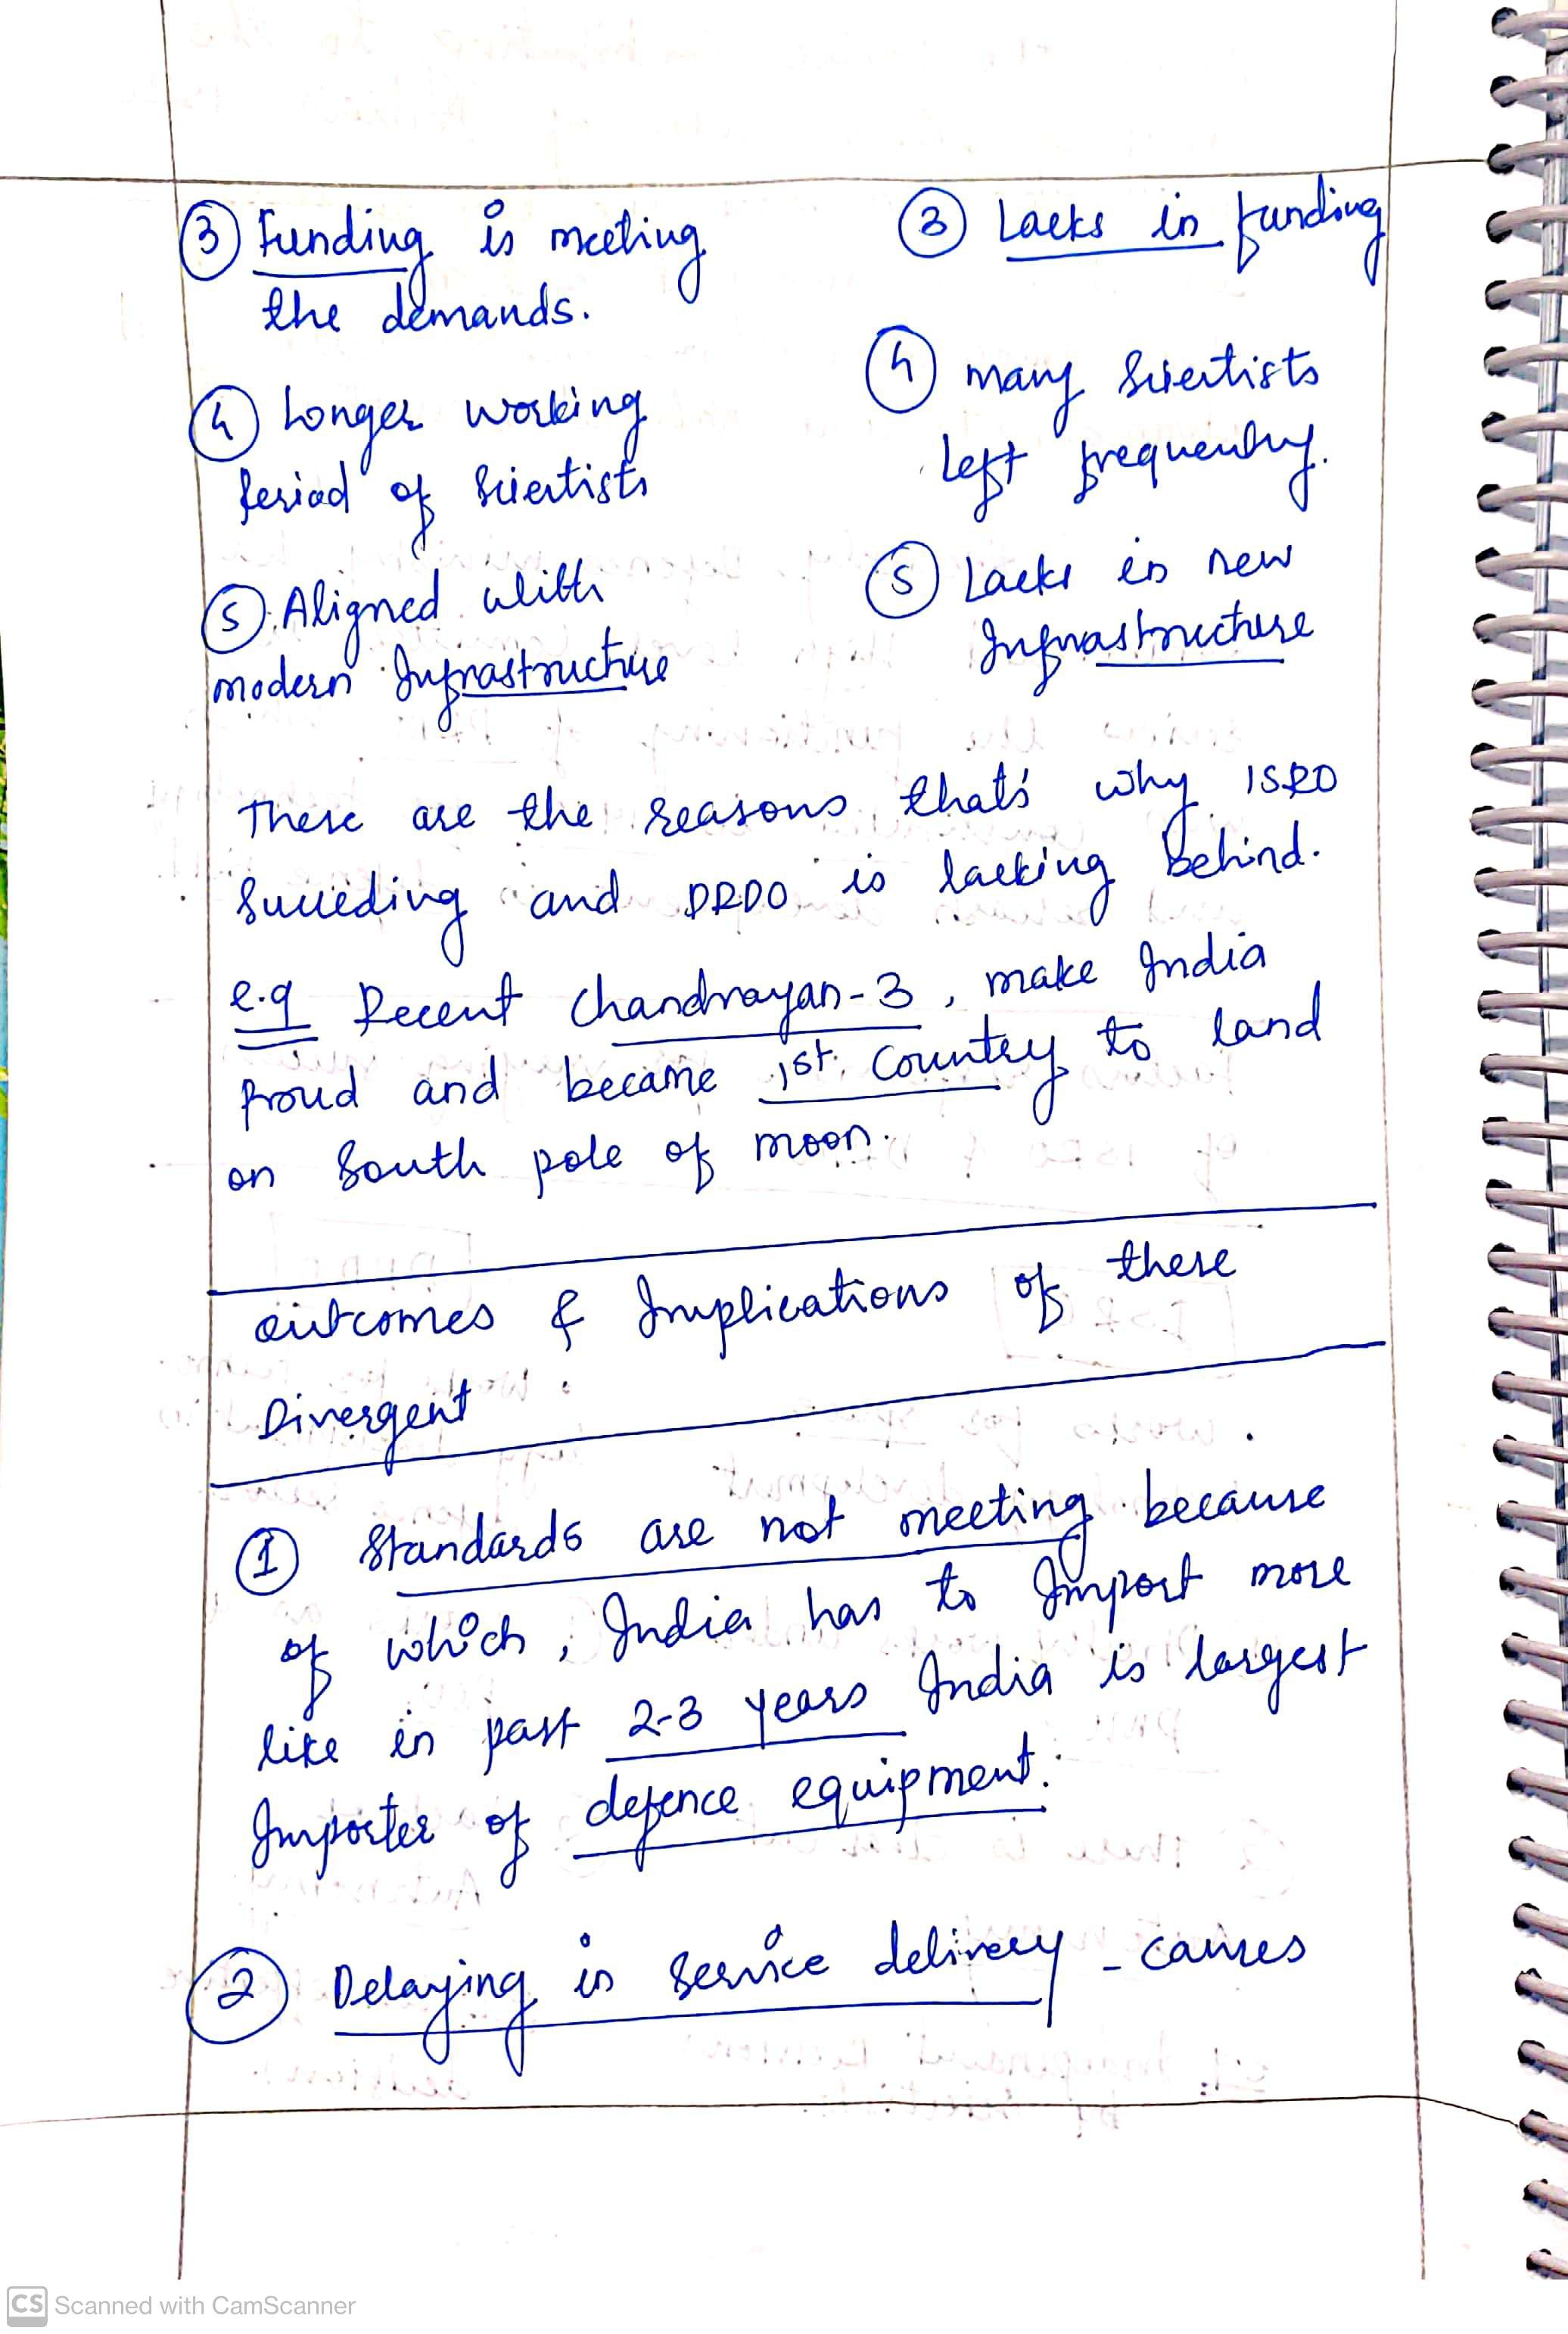 ③ Funding is meeting
the demands.
④ Longer working
Period of Scientists
⑤ Aligned with
modern Infrastructure
③ Lacks in funding
④ many Scientists
left frequently.
⑤ Lacks in new
Infrastructure
These are the reasons that's why ISRO
Succeding and DRDO is lacking behind.
e.g Recent Chandrayan-3, make India
Proud and became 1st Country to land
on South pole of moon.
outcomes & Implications of these
Divergent
① Standards are not meeting because
of which, India has to Import more
like in past 2-3 years India is largest
Importer of defence equipment.
② Delaying in Service delivery - causes
CS Scanned with CamScanner